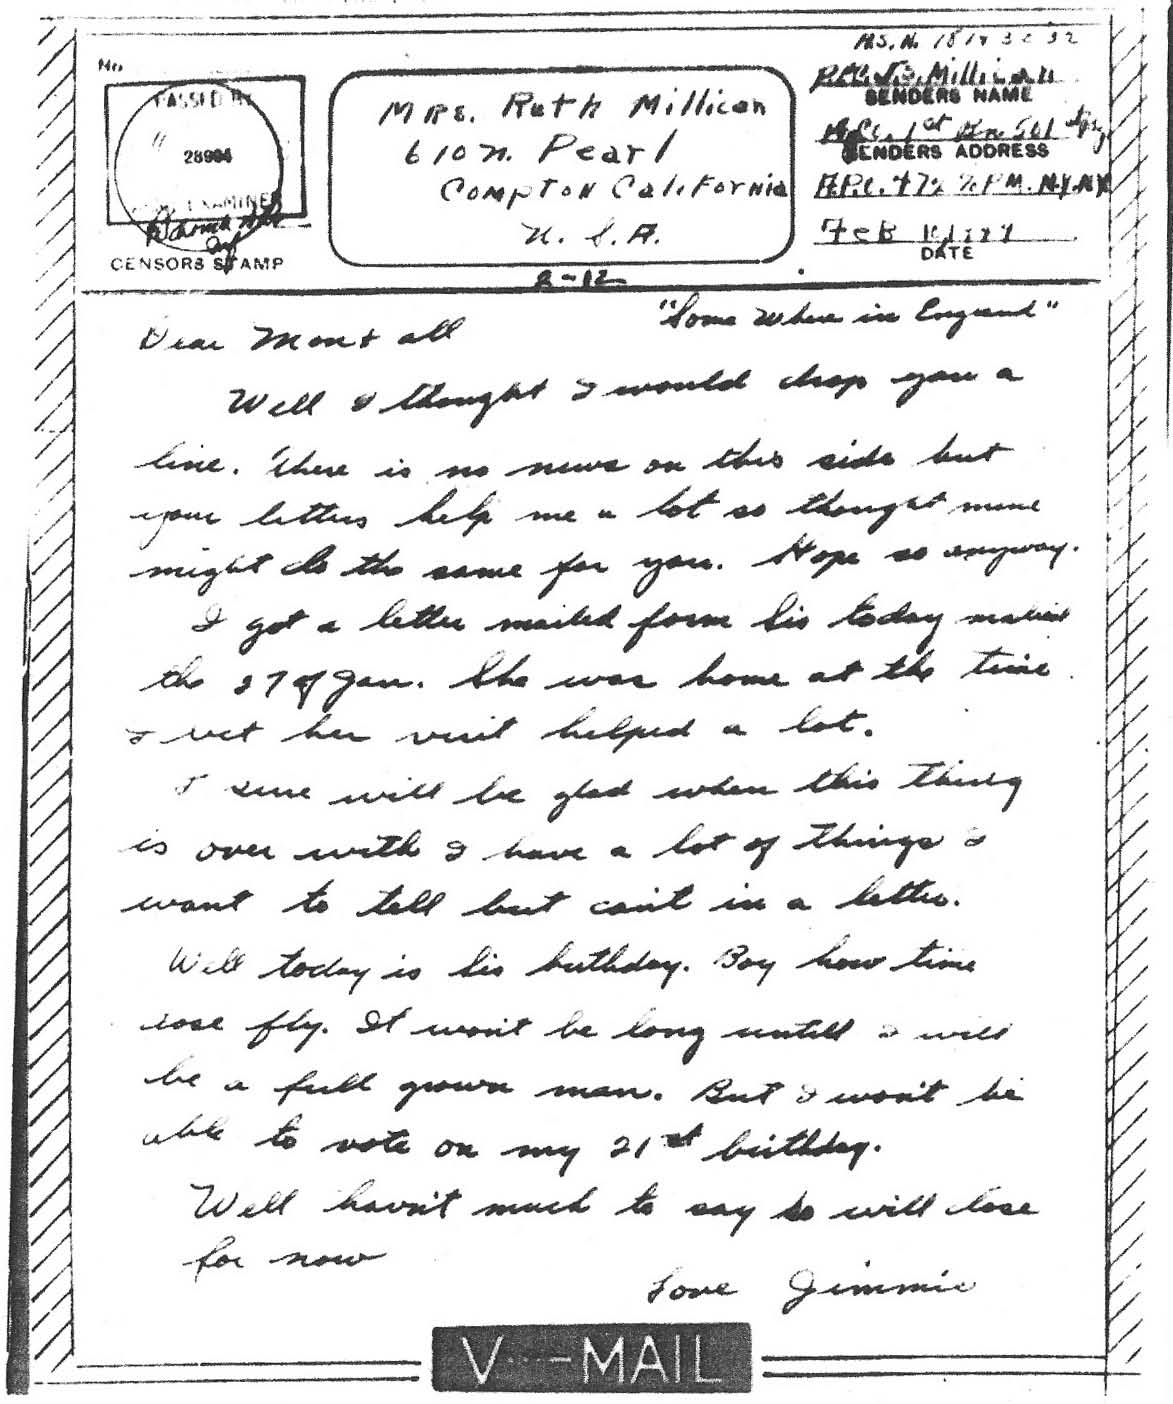 No.
PASSED BY
28994
EXAMINER
CENSORS STAMP
MRS. Ruth Millican
610 N. Pearl
Compton California
U. S. A.
A.S.N.
Pfc. J. S. Millican
SENDERS NAME
Co. 1st Bn 501
SENDERS ADDRESS
A.P.O. 472 % P.M. N.Y. N.Y.
Feb
DATE
2-12
"Some Where in England"
Dear Mom & all
Well I thought I would drop you a
line. There is no news on this side but
your letters help me a lot so thought mine
might do the same for you. Hope so anyway.
I got a letter mailed form Sis today mailed
the 27 of Jan. She was home at the time
I bet her visit helped a lot.
I sure will be glad when this thing
is over with I have a lot of things I
want to tell but can't in a letter.
Well today is Sis birthday. Boy how time
dose fly. It won't be long untill I will
be a full grown man. But I won't be
able to vote on my 21st birthday.
Well havn't much to say so will close
for now
Love Jimmie
V---MAIL